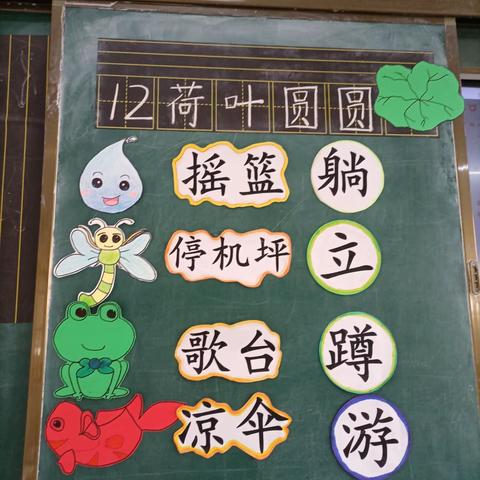 12荷叶圆圆
摇篮 躺
停机坪 立
歌台 蹲
凉伞 游